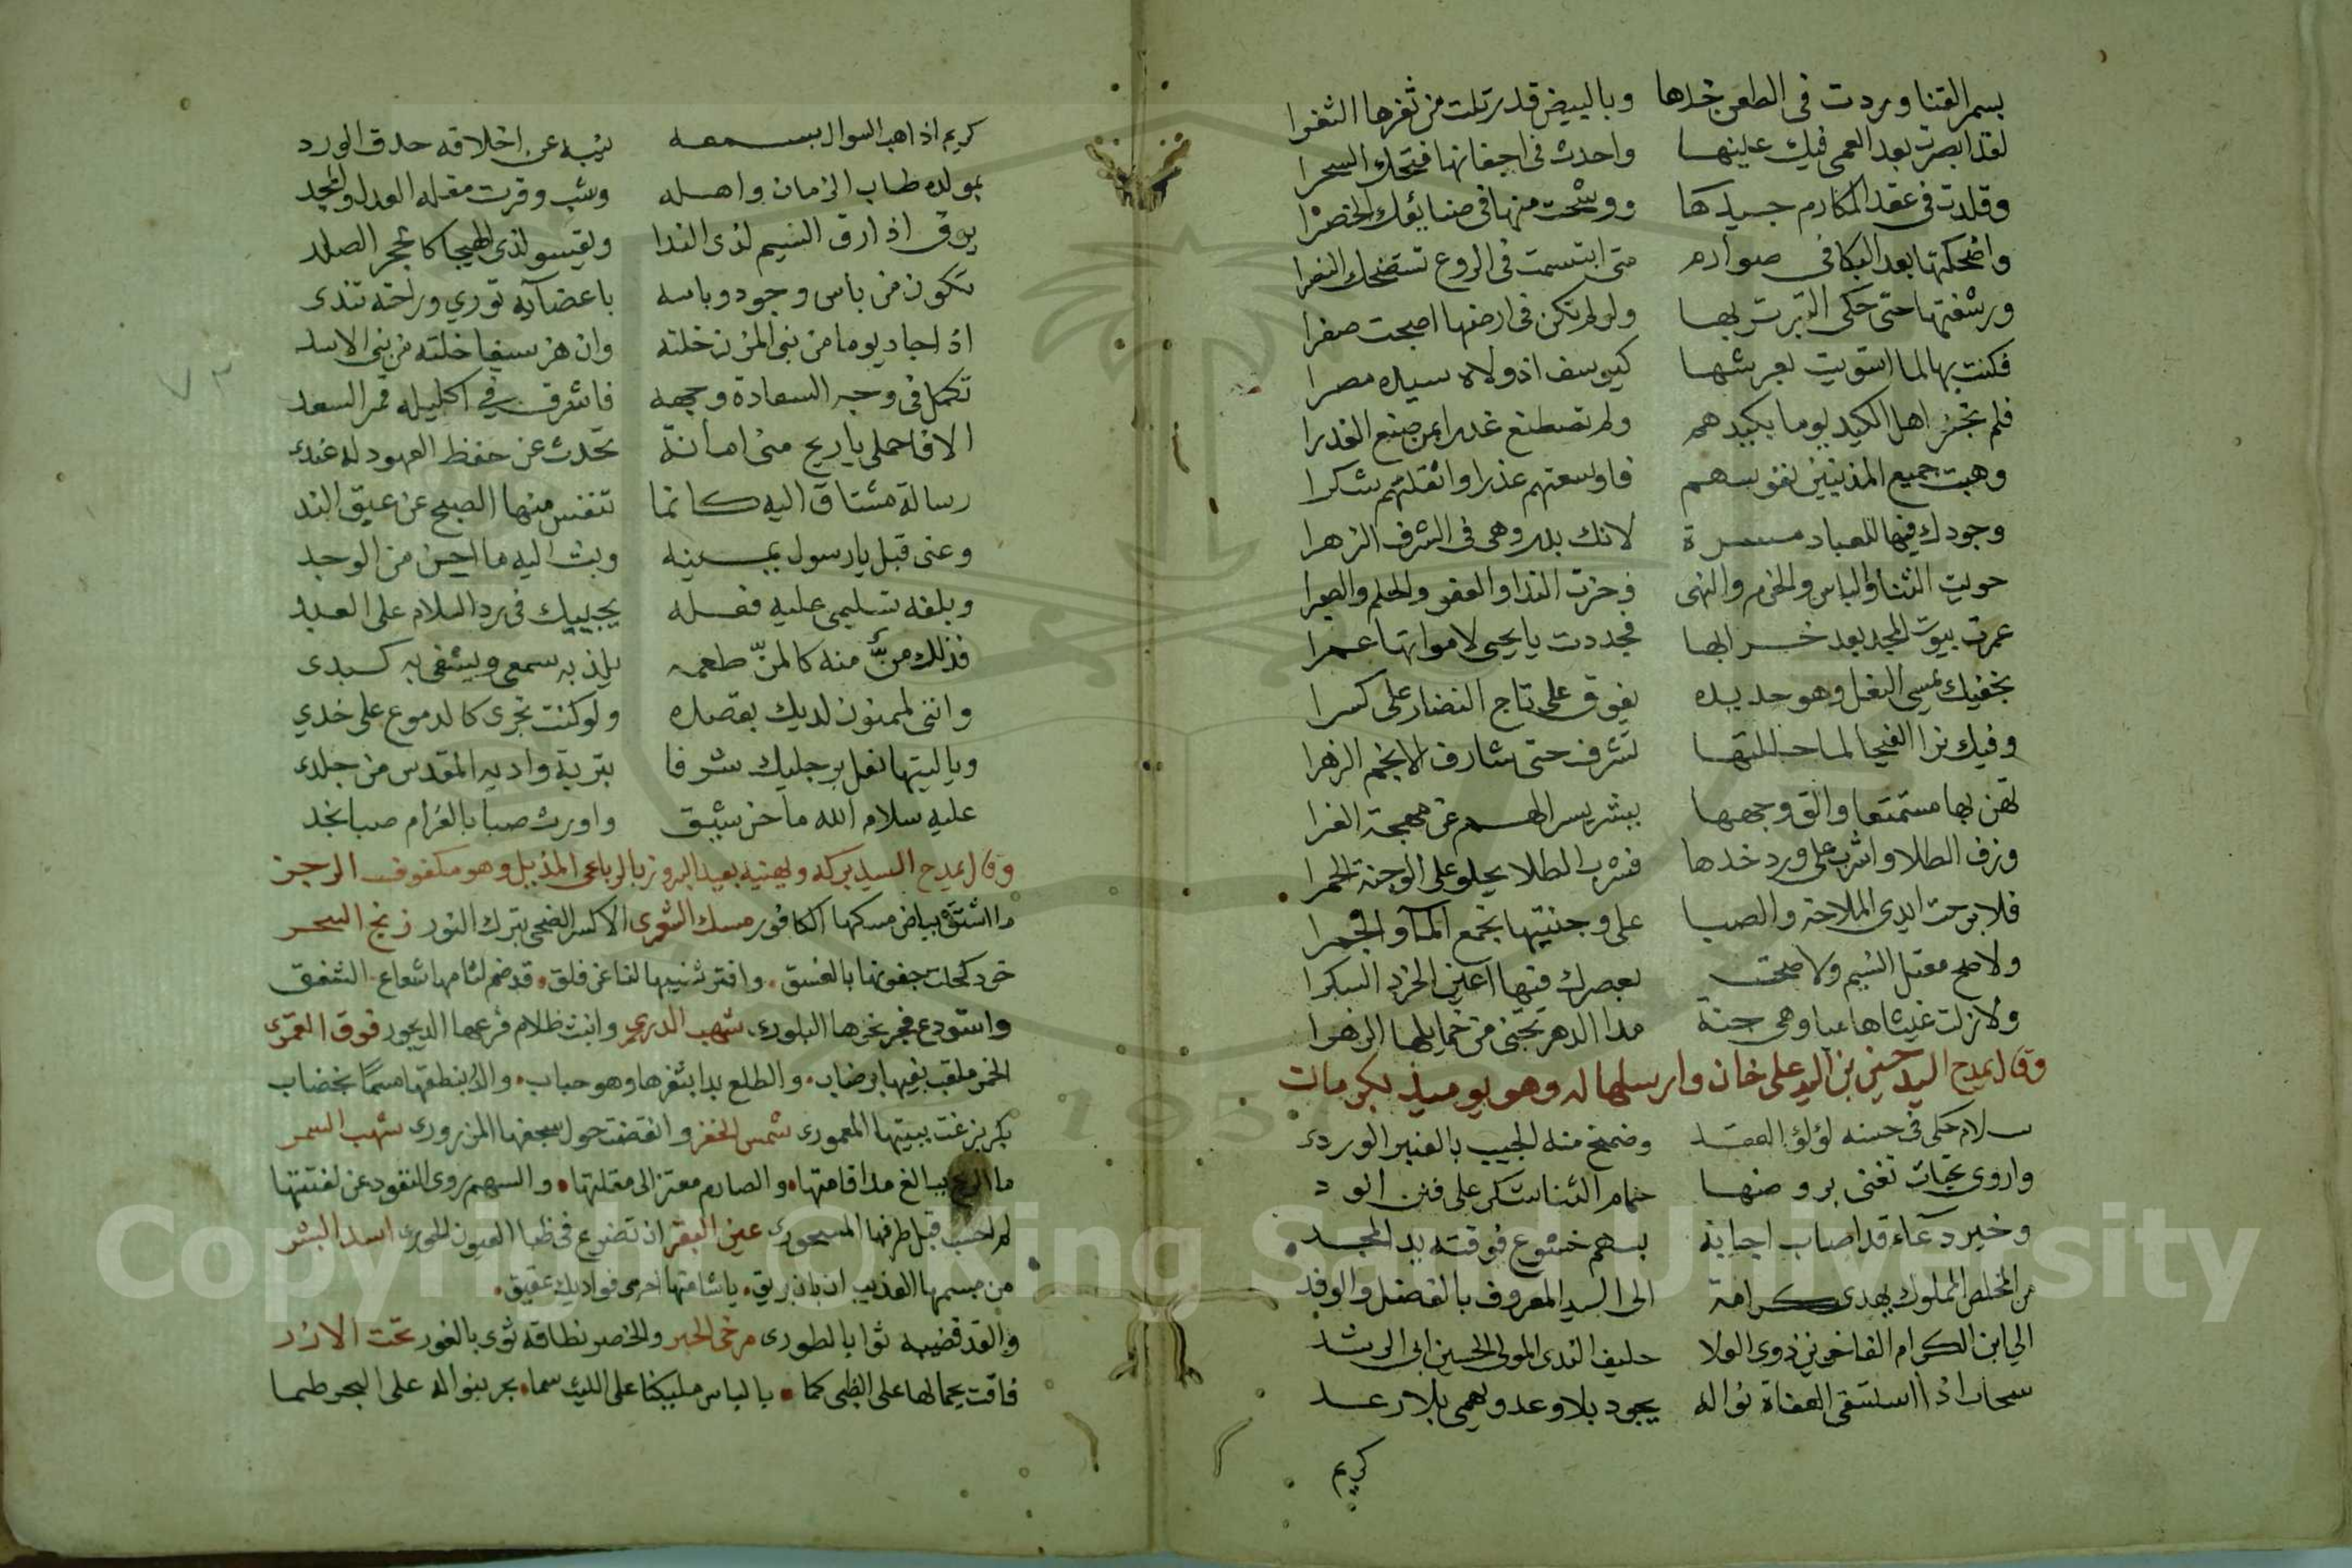 بسمر القنا وردت في الطعن خدها وبالبيض قد رتلت من ثغرها الثغرا
لقد ابصرت بعد العمى فيك عينها واحدث في اجفانها فتحك السحرا
وقلدت في عقد المكارم جيدها ووشحت منها في صنايعك الخصرا
واضحكتها بعد البكا في صوارم متى ابتسمت في الروع تستضحك النصرا
ورشفتها حتى حكى التبر تربها ولو لم تكن في ارضها اصبحت صفرا
فكنت بها لما استويت بعرشها كيوسف اذ ولاه سيده مصرا
فلم تجز اهل الكيد يوما بكيدهم ولم تصطنع غدرا بمن صنع الغدرا
وهبت جميع المذنبين نفوسهم فاوسعتهم عذرا واثقلتهم شكرا
وجودك فيها للعباد مسرة لانك بدر وهي في الشرف الزهرا
حويت الثنا والباس والحزم والنهى وحزت الندا والعفو والحلم والصبرا
عمرت بيوت المجد بعد خرابها فجددت يا يحيى لامواتها عمرا
بخفيك يمسي النعل وهو حديده يفوق على تاج النضار على كسرا
وفيك ثرا الفيحا لما حللتها تشرف حتى شارف الانجم الزهرا
تهن بها مستمتعا والق وجهها ببشر يسر الهم عن مهجة الغرا
وزف الطلا واشرب على ورد خدها فشرب الطلا يحلو على الوجنة الحمرا
فلا برحت ايدي الملاحة والصبا على وجنتيها تجمع المآ والجمرا
ولا صح معتل النسيم ولا صحت بعصرك فيها اعين الخرد السكرا
ولا زلت غيثا هاميا وهي جنة مدا الدهر تجنى من خمايلها الزهرا
وقال يمدح السيد حسين بن السيد علي خان وارسلها له وهو يوميذ بكرمات
سلام حكى في حسنه لؤلؤ العقد وضمخ منه الجيب بالعنبر الوردي
واروى تحيات تغنى بروضها حمام الثنا شكر على فنن الود
وخير دعآء قد اصاب اجابة بسهم خشوع فوقته يد المجد
من المخلص المملوك يهدى كرامة الى السيد المعروف بالفضل والوفد
الي ابن الكرام الفاخرين ذوي العلا حليف الندى المولى الحسين ابي الرشد
سحاب اذا استسقى العفاة نواله يجود بلا وعد ويهمي بلا رعد
كريم
كريم اذا هب السوال بسمعه ينبه عن اخلاقه حدق الورد
بمولده طاب الزمان واهله وشب وقرت مقلة العدل والمجد
يرق اذا رق النسيم لدى الندا ويقسو لدى الهيجا كالحجر الصلد
تكون من باس وجود وباسه باعضآيه توري وراحته تندى
اذا جاد يوما من بني المزن خلته وان هز سيفا خلته من بني الاسد
تكمل في وجه السعادة وجهه فاشرق في اكليله قمر السعد
الا فاحملي يا ريح مني امانة تحدث عن حفظ العهود له عندي
رسالة مشتاق اليه كانما تنفس منها الصبح عن عبق الند
وعني قبل يا رسول يمينه وبث اليه ما اجن من الوجد
وبلغه تسليمي عليه فعله يجيبك في رد السلام على العبد
فذلك من منه كالمن طعمه يلذ به سمعي ويشفى به كبدي
وانني لممنون لديك بقصده ولو كنت تجري كالدموع على خدي
ويا ليتها نعل برجليك شرفا بتربة واديه المقدس من جلدي
عليه سلام الله ما حن شيق واورث صبا بالغرام صبا نجد
وقال يمدح السيد بركه ويهنيه بعيد البروز بالرباعي المذيل وهو مكفوف الرجز
ما اشتق بياض مسكها الكافور مسك الشعري الا كسر الضحى بترك النور زنج السحر
خود كحلت جفونها بالغسق وافتر ثنيها لنا عن فلق قد ضم لثامها شعاع الشفق
واستودع فجر نحرها البلوري شهب الدرري وانبث ظلام فرعها الديجور فوق القمر
الخمر ملقب بفيها برضاب والطلع بدا بثغرها وهو حباب بخضاب
بكر بزغت ببيتها المعموري شمس الخفر وانقضت حول سجفها المزروري شهب السمر
ما يبالغ مدا قامتها والصارم معتز الى مقلتها والسهم روى النفوذ عن لفتتها
لم احسب قبل طرفها المسحوري عين البقر ان تصرع في ظبا العيون الحوري اسد البشر
من مبسمها العذيب ان بان بريق يا شامتها احرمي فواديك عقيق
والقد قضيبه ثوا بالطوري مرخى الحبر والخصر نطاقه ثوى بالغور تحت الازر
فاقت بجمالها على الظبى كما بالباس مليكنا على الليث سما بحر بنواله على البحر طما